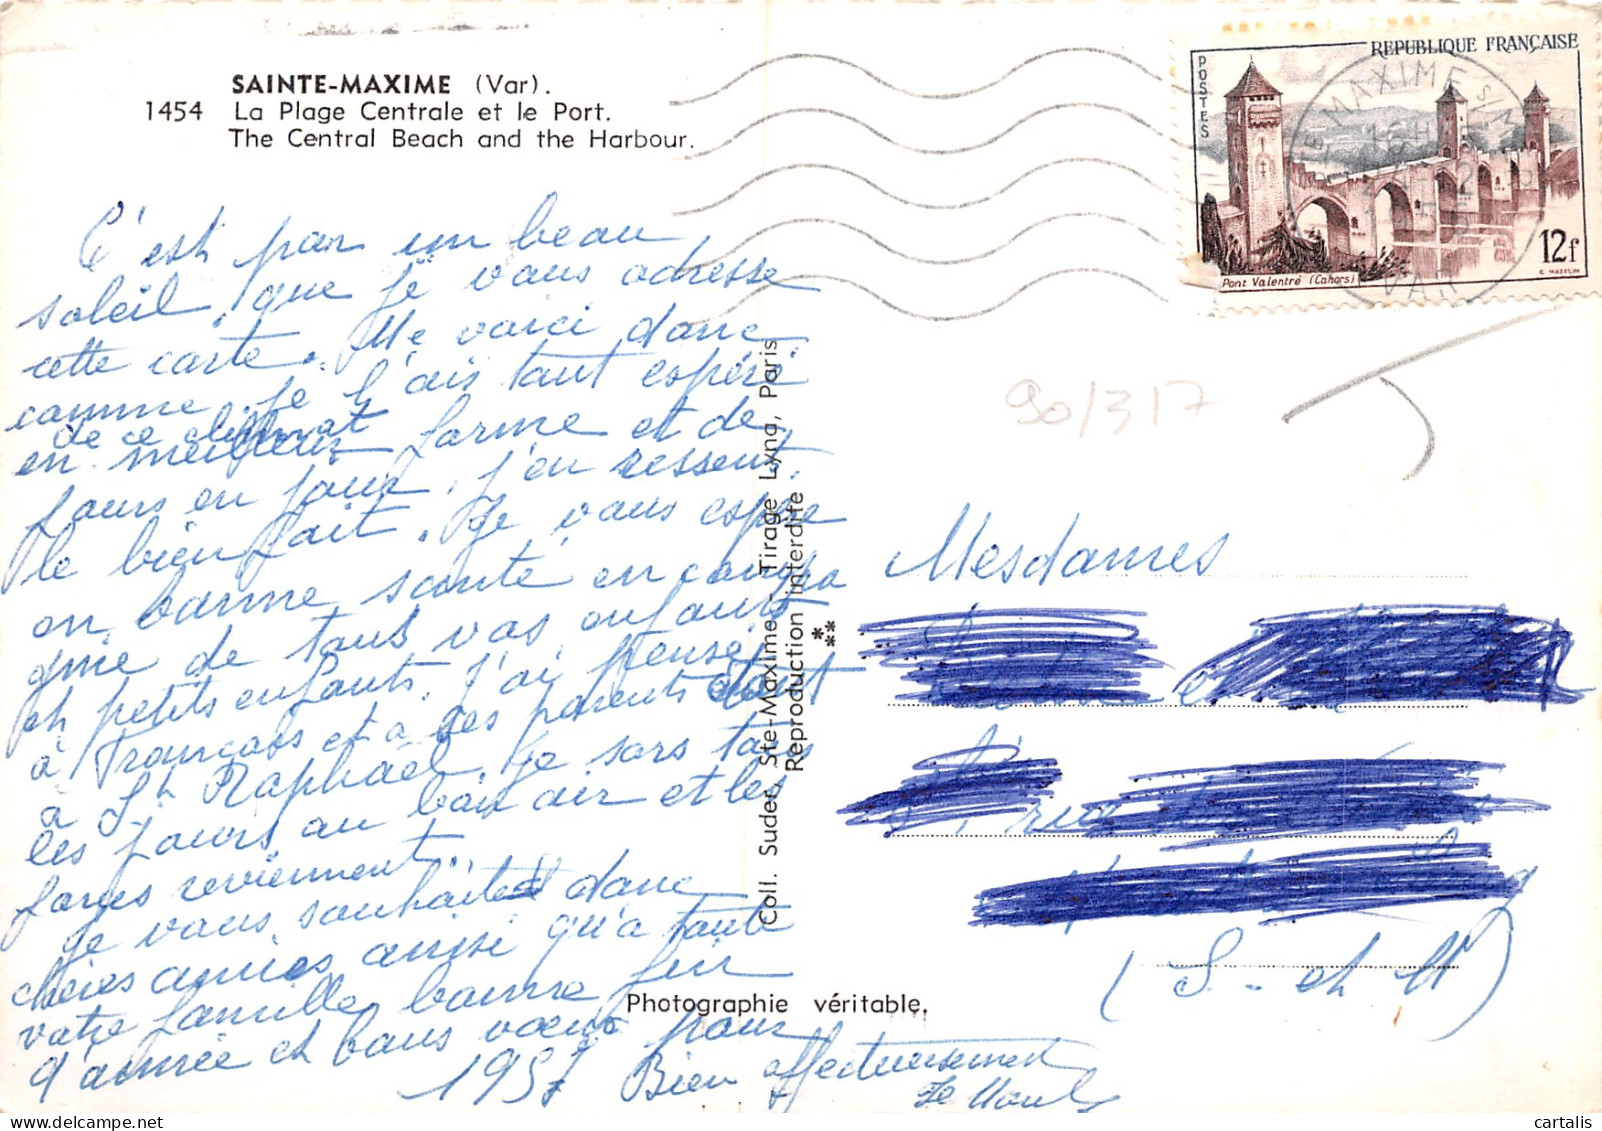 SAINTE-MAXIME (Var).
1454 La Plage Centrale et le Port.
The Central Beach and the Harbour.
C'est par un beau
soleil, que je vous adresse
cette carte. Me voici donc
comme je l'ais tant espéré
de ce climat
en meilleur forme et de
jours en jour, j'en ressent
le bien fait. Je vous espère
en bonne santé en compa
gnie de tous vos enfants
et petits enfants. J'ai pensé
à Francois et a ses parents
à St Raphaël. Je sors tous
les jours au bon air et les
forces reviennent..
Je vous souhaite donc
chères amies ainsi qu'a toute
votre famille bonne fin
d'année et bons vœux pour
1957 Bien affectueusement
REPUBLIQUE FRANÇAISE
POSTES
Pont Valentré (Cahors)
12f
C. MAZELIN
MAXIME S/M
VAR
90/317
Coll. Suder, Ste-Maxime, Tirage Lyna, Paris
Reproduction interdite
Mesdames
(S. et M)
Photographie véritable.
cartalis